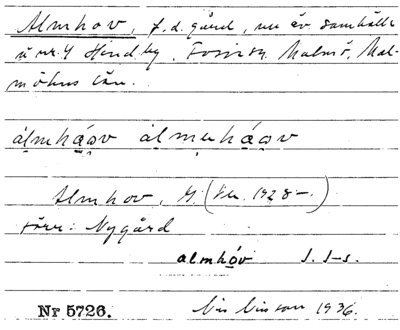 Almhov, f.d. gård, nu äv. samhälle
å nr. 4 Hindby. Fosie sn. Malmö, Mal-
möhus län.
álmhá̤o̤v álmɐhá̤o̤v
Almhov, G. (Ver. 1928-.)
förr: Nygård
almhóv J. J-s.
Nr 5726. 1936.